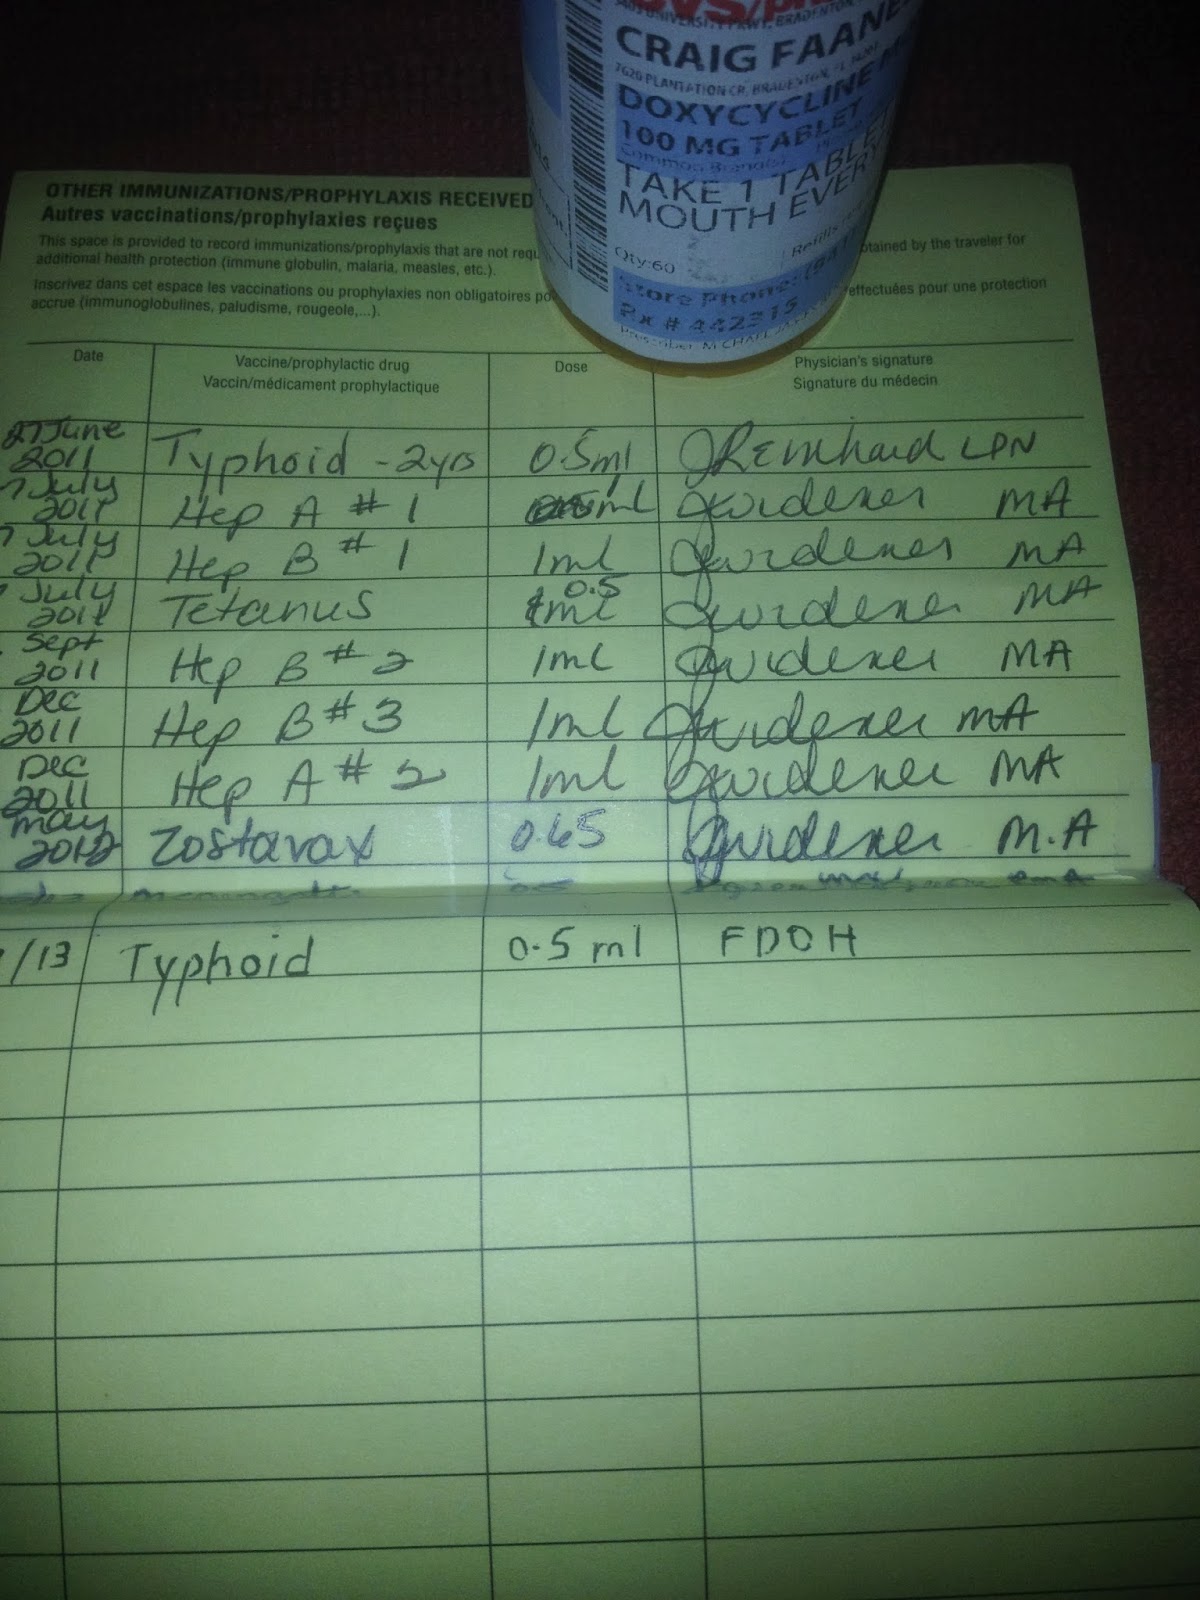 CVS/
5405 UNIVERSITY PKWY, BRADENTON
CRAIG FAANE
7620 PLANTATION CR, BRADENTON, FL
DOXYCYCLINE M
100 MG TABLET
Common Brand(s):
TAKE 1 TABLE
MOUTH EVERY
Qty:60 Refills
Store Phone: (941
Rx # 442315
Prescriber: MICHAEL
OTHER IMMUNIZATIONS/PROPHYLAXIS RECEIVED
Autres vaccinations/prophylaxies reçues
This space is provided to record immunizations/prophylaxis that are not requ obtained by the traveler for
additional health protection (immune globulin, malaria, measles, etc.).
Inscrivez dans cet espace les vaccinations ou prophylaxies non obligatoires po effectuées pour une protection
accrue (immunoglobulines, paludisme, rougeole,...).
Date Vaccine/prophylactic drug Dose Physician's signature
Vaccin/médicament prophylactique Signature du médecin
27 June 2011 Typhoid - 2yrs 0.5ml JReinhard LPN
7 July 2011 Hep A # 1 ml MA
7 July 2011 Hep B # 1 1ml MA
July 2011 Tetanus 0.5 ml MA
Sept 2011 Hep B # 2 1ml MA
Dec 2011 Hep B # 3 1ml MA
Dec 2011 Hep A # 2 1ml MA
May 2012 Zostavax 0.65 M.A
/13 Typhoid 0.5 ml FDOH